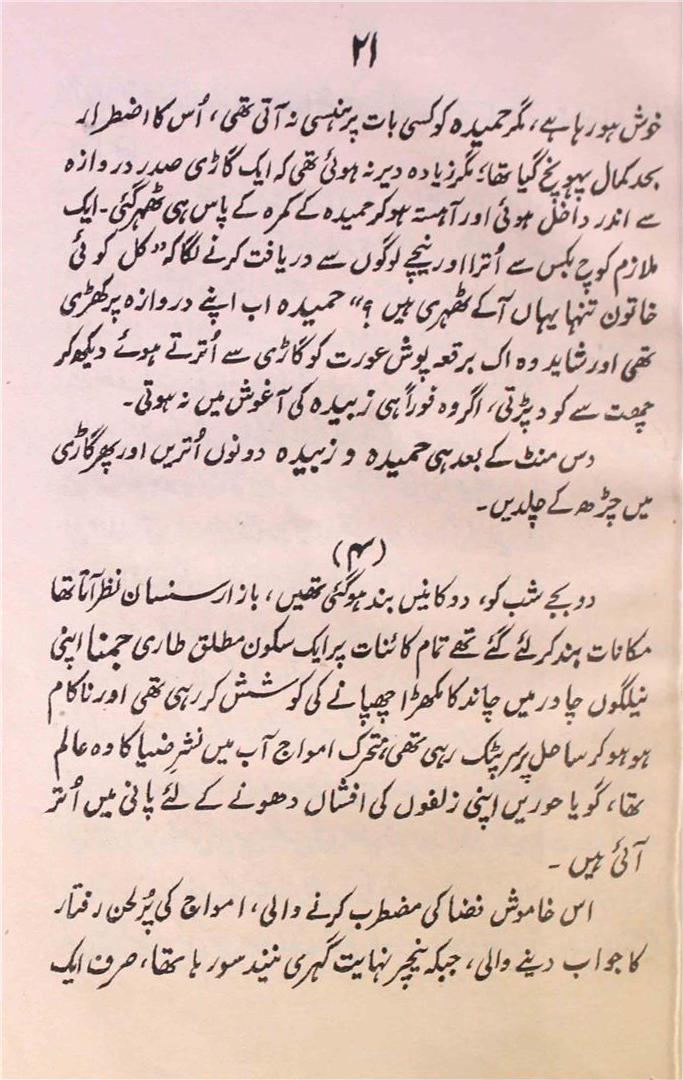 ۲۱
خوش ہو رہا ہے، مگر حمیدہ کو کسی بات پر ہنسی نہ آتی تھی، اُس کا اضطرار
بحد کمال پہونچ گیا تھا؛ مگر زیادہ دیر نہ ہوئی تھی کہ ایک گاڑی صدر دروازہ
سے اندر داخل ہوئی اور آہستہ ہو کر حمیدہ کے کمرہ کے پاس ہی ٹھہر گئی۔ ایک
ملازم کوچ بکس سے اُترا اور نیچے لوگوں سے دریافت کرنے لگا کہ ”کل کوئی
خاتون تنہا یہاں آکے ٹھہری ہیں ؟“ حمیدہ اب اپنے دروازہ پر کھڑی
تھی اور شاید وہ اک برقعہ پوش عورت کو گاڑی سے اُترتے ہوئے دیکھ کر
چھت سے کود پڑتی، اگر وہ فوراً ہی زبیدہ کی آغوش میں نہ ہوتی۔
دس منٹ کے بعد ہی حمیدہ و زبیدہ دونوں اُتریں اور پھر گاڑی
میں چڑھ کے چلدیں۔
(۴)
دو بجے شب کو، دوکانیں بند ہو گئی تھیں، بازار سنسان نظر آتا تھا
مکانات بند کر لئے گئے تھے تمام کائنات پر ایک سکون مطلق طاری جمنا اپنی
نیلگوں چادر میں چاند کا مکھڑا چھپانے کی کوشش کر رہی تھی اور ناکام
ہو ہو کر ساحل پر سر پٹک رہی تھی؛ متحرک امواج آب میں نشرِ ضیا کا وہ عالم
تھا، گویا حوریں اپنی زلفوں کی افشاں دھونے کے لئے پانی میں اُتر
آئی ہیں ۔
اس خاموش فضا کی مضطرب کرنے والی، امواج کی پُر لحن رفتار
کا جواب دینے والی، جبکہ نیچر نہایت گہری نیند سو رہا تھا، صرف ایک